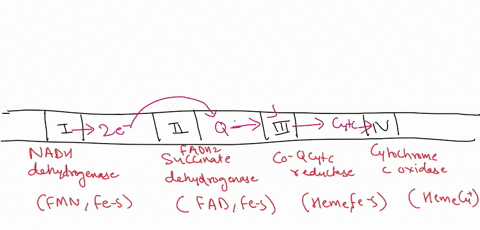 I → 2e⁻ II Q → III → Cytc → IV
NADH
dehydrogenase
(FMN, Fe-S)
FADH2
Succinate
dehydrogenase
(FAD, Fe-S)
Co-QCytc
reductase
(Heme, Fe-S)
Cytochrome
c oxidase
(HemeCu⁺)